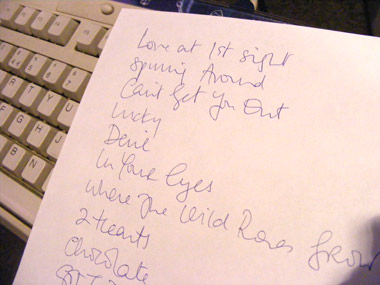 Love at 1st sight
Spinning Around
Can't Get You Out
Lucky
Devil
In Your Eyes
Where The Wild Roses Grow
2 Hearts
Chocolate